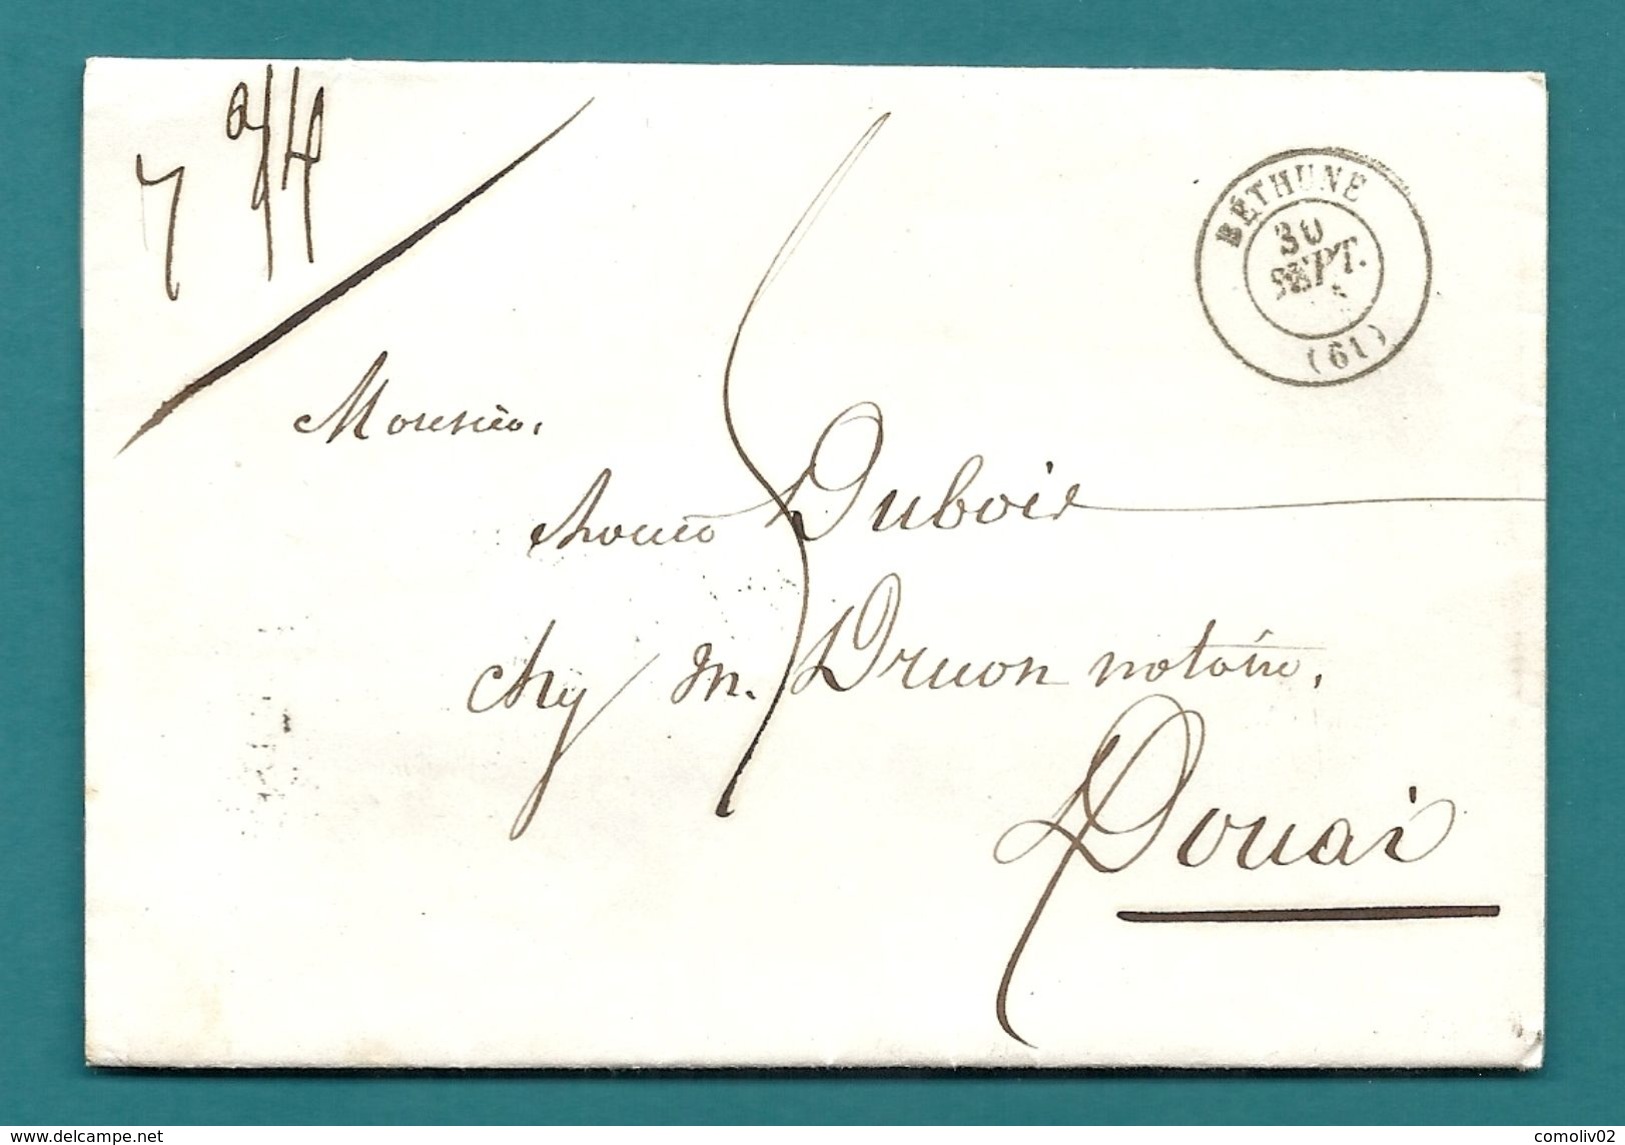 7
BÉTHUNE
30
SEPT.
(61)
Monsieur
Dubois
chez M. Druon notaire,
Douai
delcampe.net
comoliv02